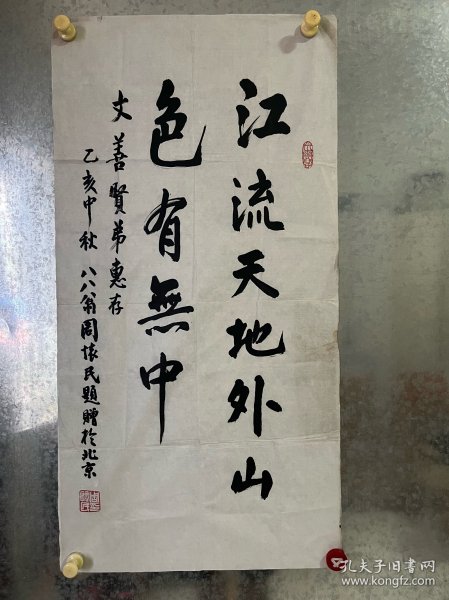 江流天地外山
色有無中
文善賢弟惠存
乙亥中秋 八八翁周懷民題贈於北京
孔夫子旧书网
www.kongfz.com